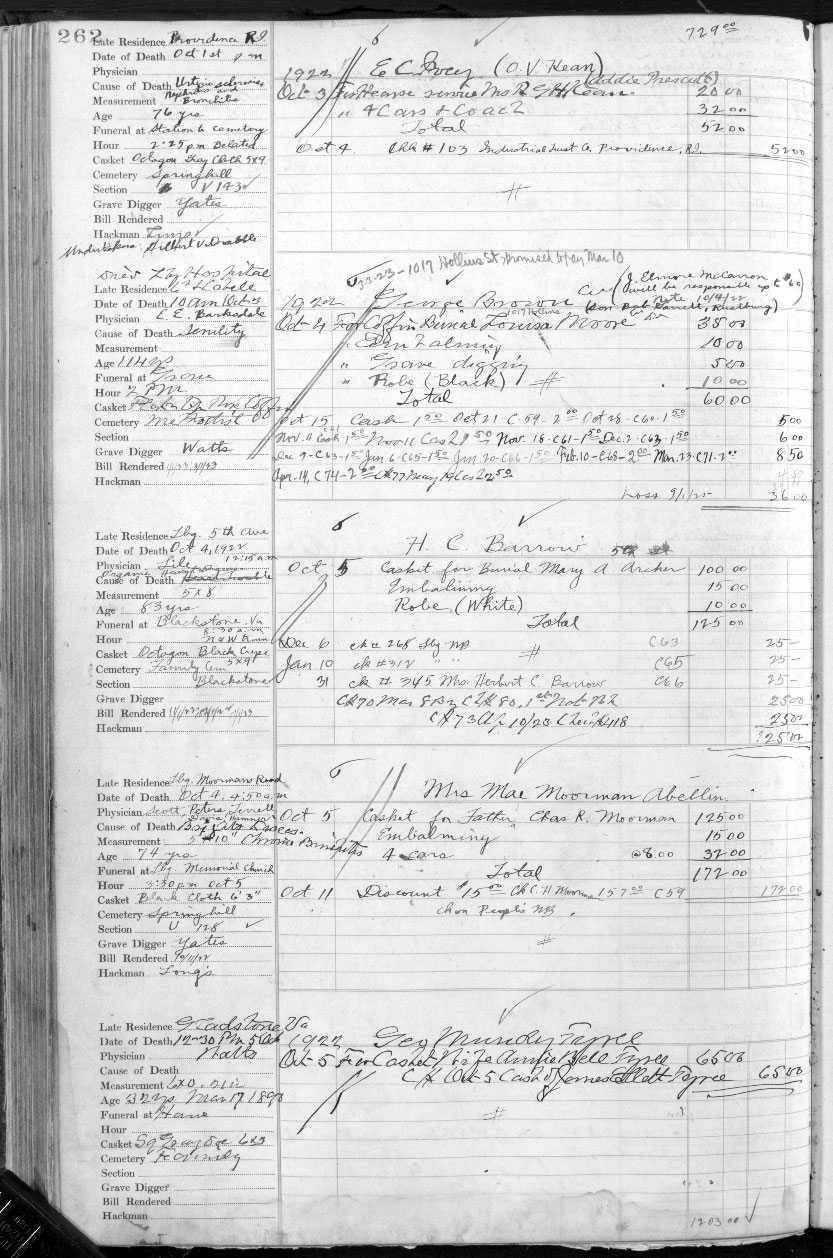 262
729 00
Late Residence Providence RI
Date of Death Oct 1st pm
Physician
Cause of Death
Nephritis and
Measurement Bronchitis
Age 76 yrs
Funeral at Station to Cemetery
Hour 2:25 pm Belated
Casket Octagon Gray Cloth 5x9
Cemetery Springhill
Section V 143
Grave Digger Yates
Bill Rendered
Hackman
Undertakers Gilbert V.
1922 E C Ivey (O. V. Kean)
(Addie Prescott)
Oct 3 For Hearse service Mrs R G H Kean 20 00
" 4 Cars & Coach 32 00
Total 52 00
Oct 4 Chk # 103 Industrial Trust Co. Providence, RI. 52 00
Hospital
Late Residence
Date of Death 10 am Oct 3
Physician C. E. Barksdale
Cause of Death Senility
Measurement
Age 114 yrs
Funeral at Grave
Hour 2 PM
Casket
Cemetery Methodist
Section
Grave Digger Watts
Bill Rendered
Hackman
1017 Hollins St promised to pay Mar 10
1922 George Brown
(J. Elmore McCarron
will be responsible up to $60)
Note 10/4/22
1017 Hollins
Oct 4 For Coffin Burial Louisa Moore 35 00
" Embalming 10 00
" Grave digging 5 00
" Robe (Black) 10 00
Total 60 00
Oct 15 Cash 1 50 Oct 21 - C-59 - 2 00 Oct 28 - C60 - 1 50 5 00
Nov. 4 Cash 1 50 Nov 11 Cas 1 50 Nov. 18 - C61 - 1 50 Dec. 2 - C63 - 1 50 6 00
Dec 9 - C63 - 1 50 Jan. 6 - C65 - 1 50 Jan. 20 - C66 - 1 50 Feb. 10 - C68 - 2 00 Mar. 23 - C71 - 2 00 8 50
Apr. 14, C74 - 2 00 C77 May 19 Cas 2 50
Loss 9/1/25 36 00
Late Residence Lbg. 5th Ave
Date of Death Oct 4, 1922
12:15 a.m
Physician Lile
Organic
Cause of Death Heart Trouble
Measurement 5x8
Age 83 yrs
Funeral at Blackstone, Va
8:30 a.m.
Hour N&W Train
Casket Octagon Black Crepe
5x9
Cemetery Family Cem
Section Blackstone
Grave Digger
Bill Rendered
Hackman
H. C. Barrow 5th st
Oct 5 Casket for Burial Mary A Archer 100 00
Embalming 15 00
Robe (White) 10 00
Total 125 00
Dec 6 ck # 268 Lbg NB C63 25 -
Jan 10 ck # 312 " " C65 25 -
31 ck # 345 Mrs. Herbert C. Barrow C66 25 -
C70 Mar 8 By Ck 80, 1st Nat. Bk 25 00
Ck 73 Ap 10/23 Check 418 25 00
125 00
Late Residence Lbg. Moormans Road
Date of Death Oct 4, 4:50 a.m
Physician Scott, Peters, Terrell
Davis
Cause of Death
Measurement 5-10" Chronic Bronchitis
Age 74 yrs
Funeral at Lbg. Memorial Church
Hour 3:30 pm Oct 5
Casket Black Cloth 6'3"
Cemetery Springhill
Section U 128
Grave Digger Yates
Bill Rendered 10/11/22
Hackman Long's
Mrs Mae Moorman Abellin
Oct 5 Casket for Father Chas R. Moorman 125 00
Embalming 15 00
4 cars @8.00 32 00
Total 172 00
Oct 11 Discount $15 00 Ck C. H Moorman 157 00 C59 172 00
Ch on Peoples NB.
Late Residence Gladstone, Va
Date of Death 12-30 PM 5 Oct
Physician Watts
Cause of Death
Measurement 6x0 - 21 in
Age 32 yrs Mar 17 1890
Funeral at Home
Hour
Casket Sq Gray 6x3
Cemetery Family
Section
Grave Digger
Bill Rendered
Hackman
1922 Geo Mundy Tyree
Oct 5 For Casket Wife Annie Bell Tyree 65 00
C/H Oct 5 Cash of James Ellett Tyree 65 00
1203 00